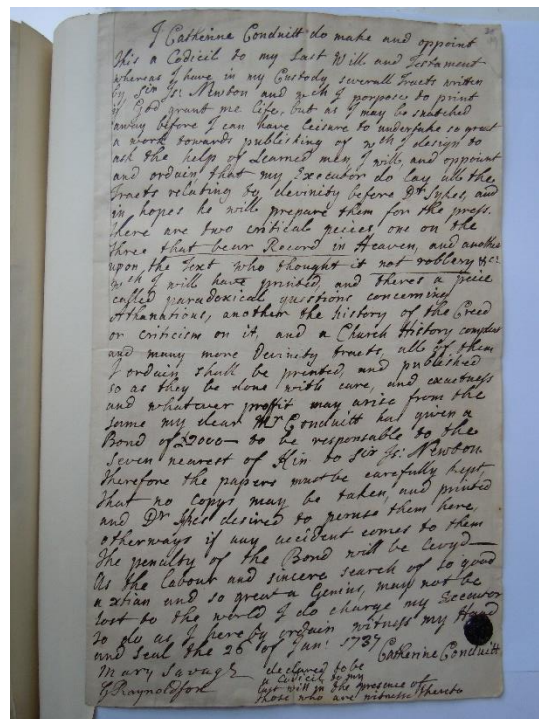 I Catherine Conduitt do make and appoint
this a Codicil to my Last Will and Testament
whereas I have in my Custody severall Tracts written
by Sir Is: Newton and wch I porpose to print
if God grant me life, but as I may be snatched
away before I can have leisure to undertake so great
a work towards publishing of wch I design to
ask the help of Learned men, I will, and appoint
and ordain that my Executor do lay all the
Tracts relating to devinity before Dr Sykes, and
in hopes he will prepare them for the press.
there are two critical peices, one on the
three that bear Record in Heaven, and another
upon the Text who thought it not robbery &c:
wch I will have printed, and theres a peice
called paradoxical questions concerning
Athanatious, another the history of the Creed
or criticism on it, and a Church History compleat
and many more Devinity tracts, all of them
I ordain shall be printed, and published
so as they be done with care, and exactness
and whatever proffit may arise from the
same my dear Mr Conduitt has given a
Bond of £2000 to be responsable to the
seven nearest of Kin to Sir Is: Newton
Therefore the papers must be carefully kept
that no copys may be taken, and printed
and Dr Sykes desired to peruse them here,
otherways if any accident comes to them
the penalty of the Bond will be levyd
As the labour and sincere search of so good
a xtian and so great a Genius, may not be
lost to the world I do charge my Executor
to do as I hereby ordain witness my Hand
and seal the 26 of Jan: 1737
Catherine Conduitt
Mary Savage
G Raynoldson
declared to be
a Codicil to my
last will in the presence of
those who are witness thereto